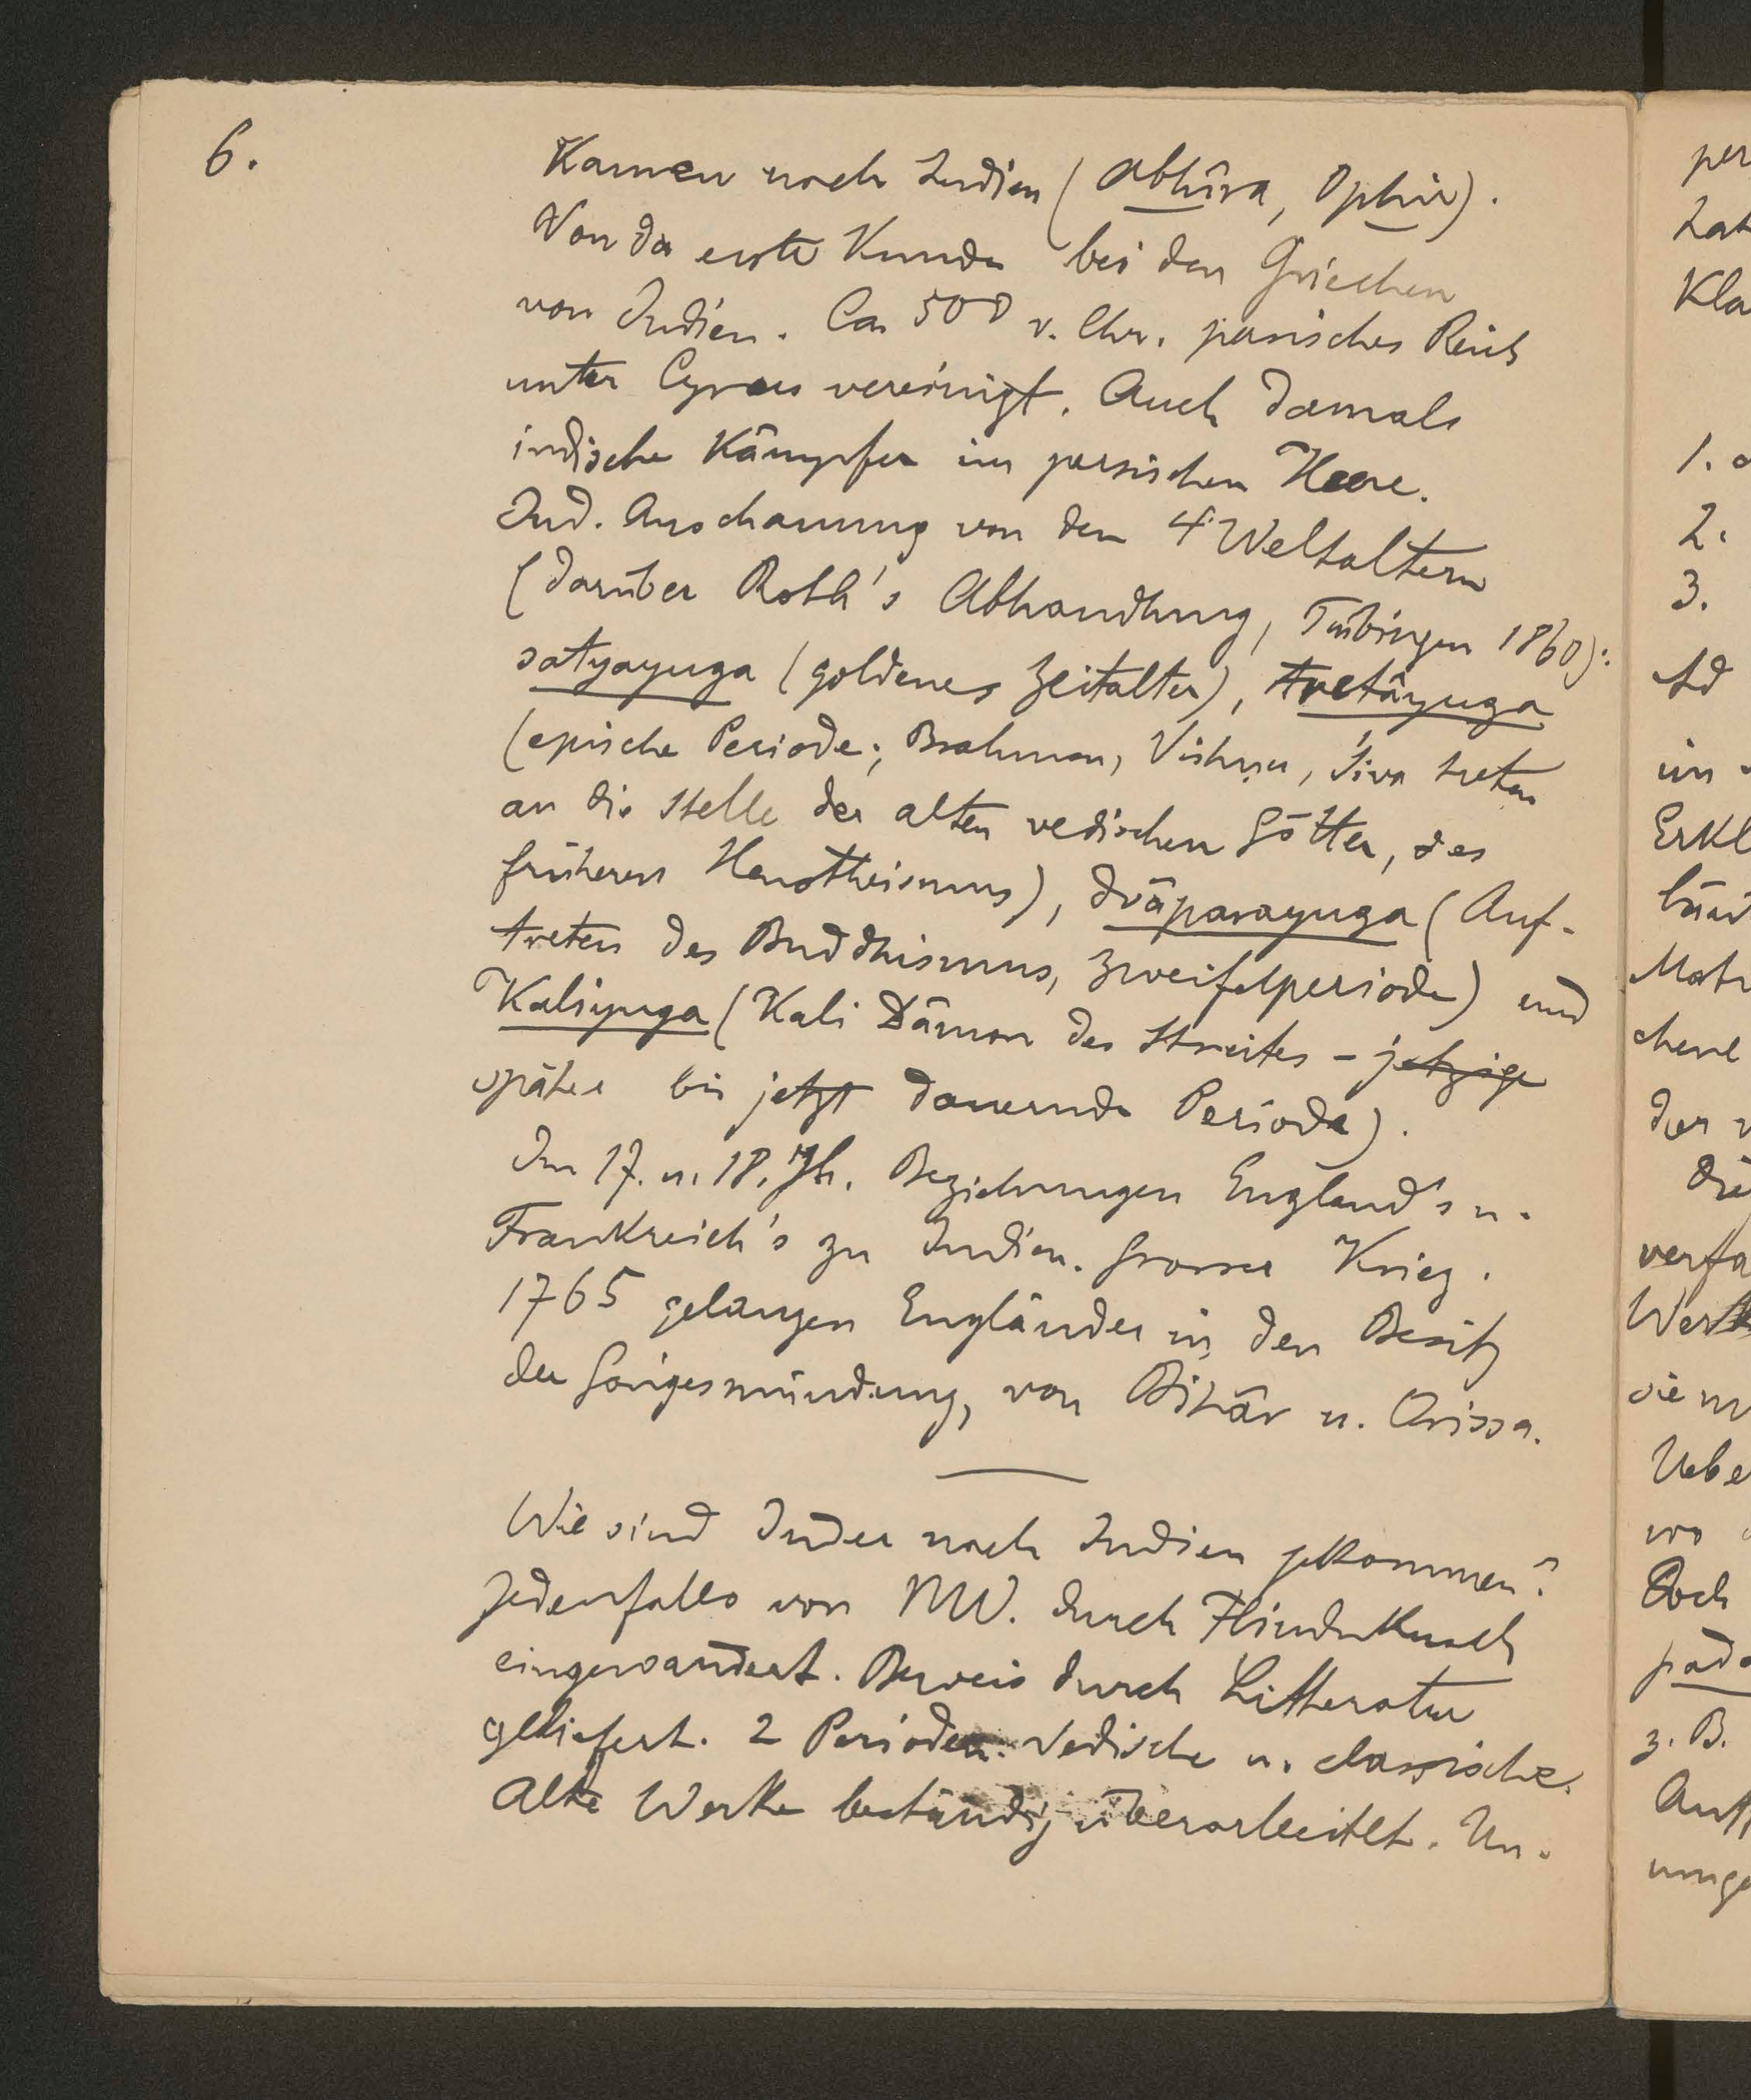 6.
Kamen nach Indien (Abhîra, Ophir).
Von da erste Kunde bei den Griechen
von Indien. Ca 500 v. Chr. persisches Reich
unter Cyrus vereinigt. Auch damals
indische Kämpfer im persischen Heere.
Ind. Anschauung von den 4 Weltaltern
(darüber Roth's Abhandlung, Tübingen 1860):
satyayuga (goldenes Zeitalter), tretâyuga
(epische Periode; Brahman, Vishṇu, Śiva treten
an die Stelle der alten vedischen Götter, des
früheren Henotheismus), dvâparayuga (Auf-
treten des Buddhismus, Zweifelperiode) und
Kaliyuga (Kali Dämon des Streites - jetzige
später bis jetzt dauernde Periode).
Im 17. u. 18. Jh. Beziehungen England's u.
Frankreich's zu Indien. Grosser Krieg.
1765 gelangen Engländer in den Besitz
der Gangesmündung, von Bihâr u. Orissa.
Wie sind Inder nach Indien gekommen?
Jedenfalls von NW. durch Hindukusch
eingewandert. Beweis durch Litteratur
geliefert. 2 Perioden. Vedische u. classische.
Alte Werke beständig überarbeitet. Un-
per
hat
Kla
1.
2.
3.
Ad
im
Erkl
Mat
der
verfa
Werk
sie
Uebe
wo
Doch
pada
z. B.
umge